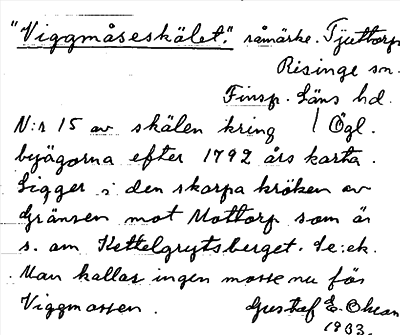 "Viggmåseskälet." råmärke. Tjuttorp
Risinge sn.
Finsp. Läns hd.
N:r 15 av skälen kring / Ögl.
byägorna efter 1792 års karta.
Ligger i den skarpa kröken av
gränsen mot Mottorp som är
s. om Kettelgrytsberget. Se: ek.
Man kallar ingen mosse nu för
Viggmossen. Gustaf E. Ohean
1933.